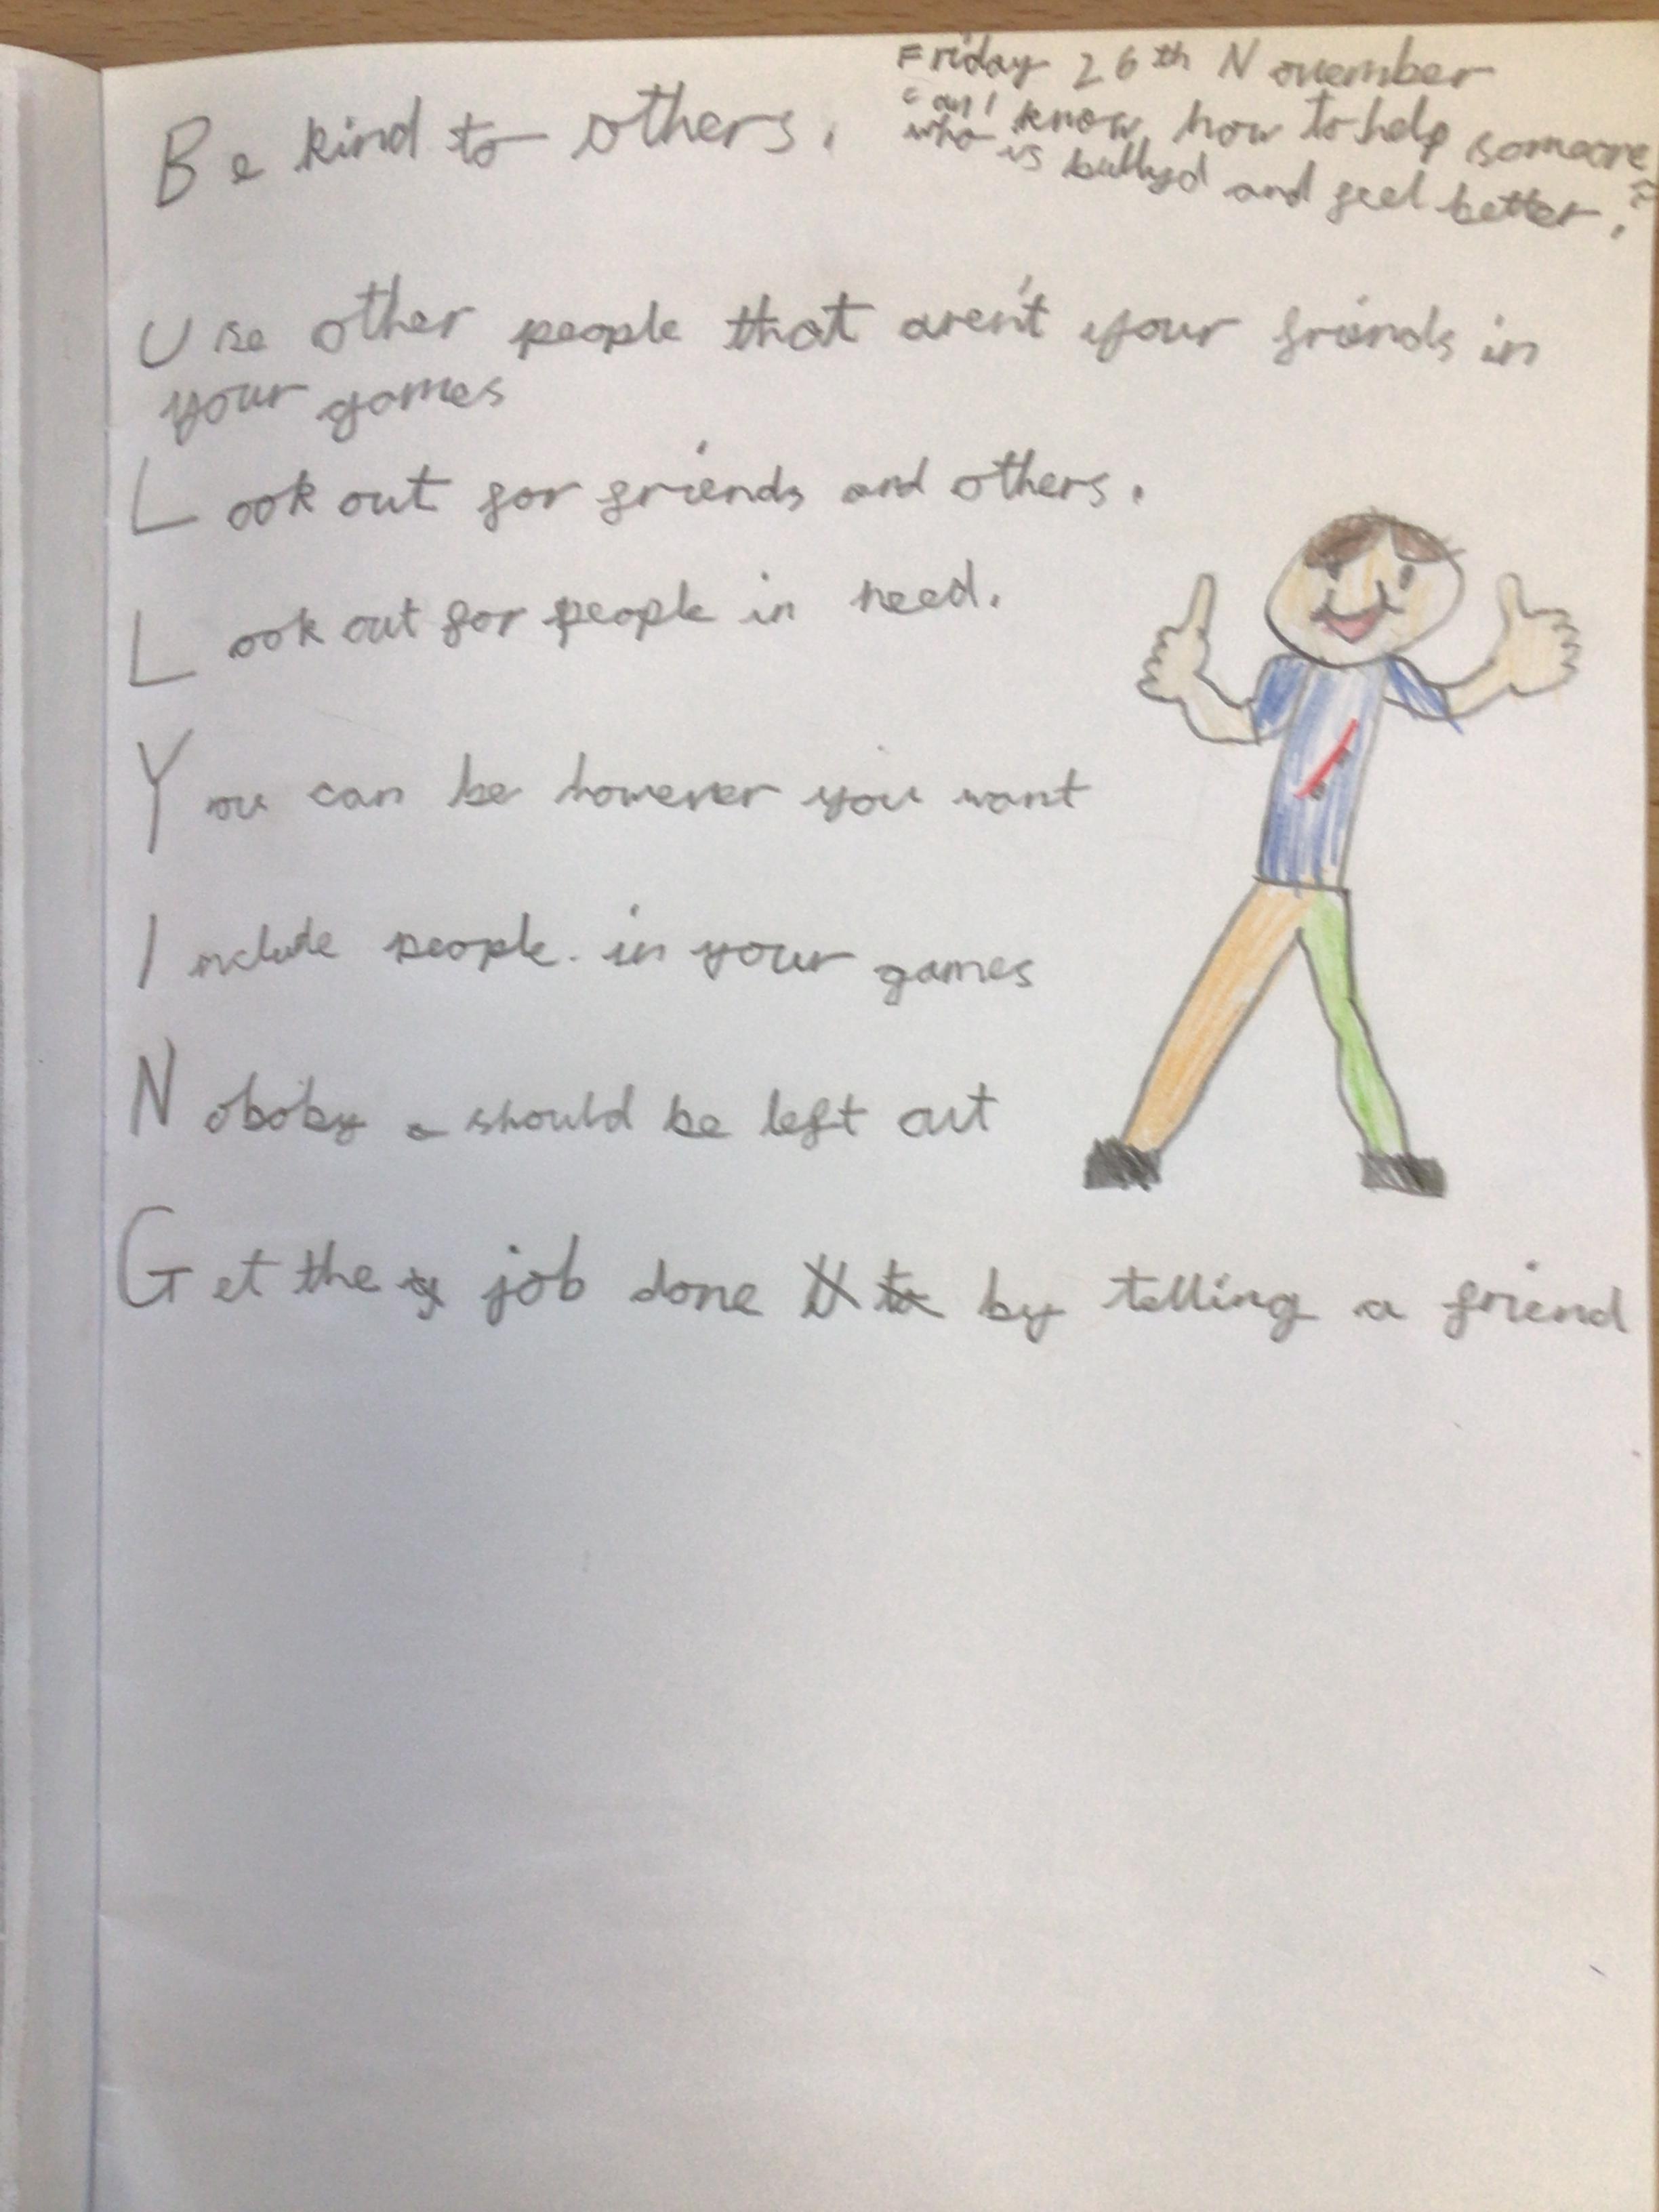 Friday 26th November
Can I know how to help someone
who is bullyd and feel better.?
Be kind to others.
Use other people that aren't your friends in
your games
Look out for friends and others.
Look out for people in need.
You can be however you want
Include people in your games
Noboby should be left out
Get the job done by telling a friend